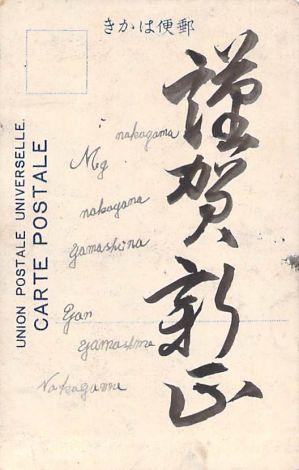 きかは便郵
謹賀新正
UNION POSTALE UNIVERSELLE.
CARTE POSTALE
nakagama
nakagana
yamashina
yamasima
Nakagama